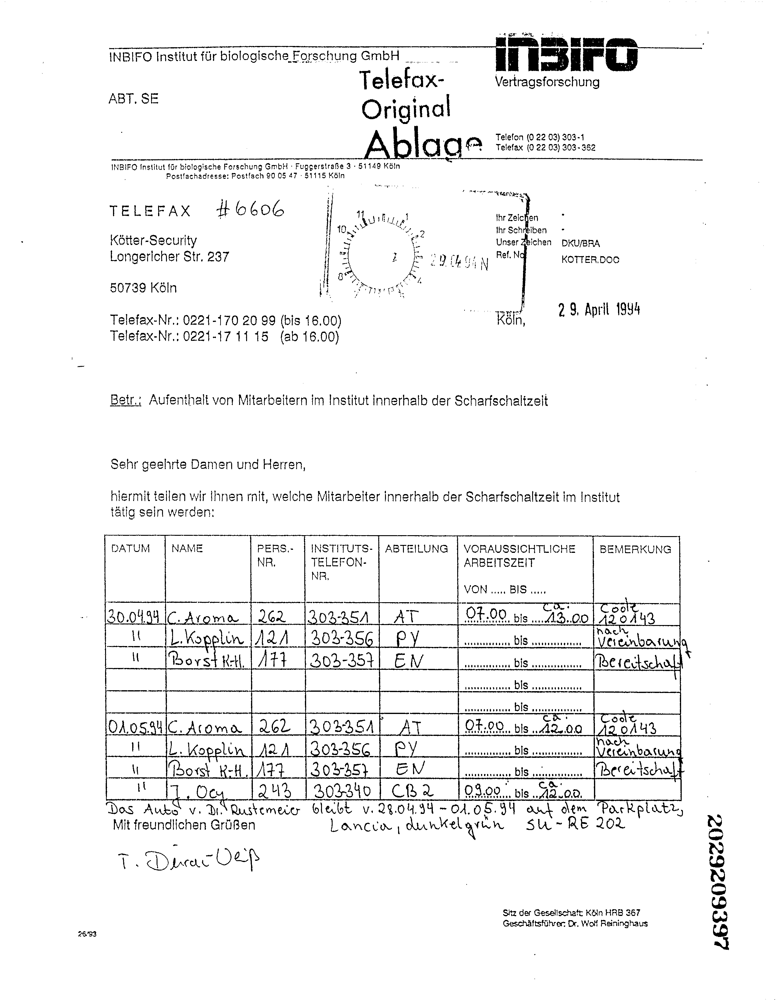 INBIFO Institut für biologische Forschung GmbH
INBIFO
Vertragsforschung
ABT. SE
Telefax-
Original
Ablage
Telefon (0 22 03) 303-1
Telefax (0 22 03) 303-362
INBIFO Institut für biologische Forschung GmbH · Fuggerstraße 3 · 51149 Köln
Postfachadresse: Postfach 90 05 47 · 51115 Köln
TELEFAX #6606
Kötter-Security
Longericher Str. 237
50739 Köln
29.04.94 N
Ihr Zeichen -
Ihr Schreiben -
Unser Zeichen DKU/BRA
Ref. No KOTTER.DOC
Telefax-Nr.: 0221-170 20 99 (bis 16.00)
Telefax-Nr.: 0221-17 11 15 (ab 16.00)
Köln, 29. April 1994
Betr.: Aufenthalt von Mitarbeitern im Institut innerhalb der Scharfschaltzeit
Sehr geehrte Damen und Herren,
hiermit teilen wir Ihnen mit, welche Mitarbeiter innerhalb der Scharfschaltzeit im Institut
tätig sein werden:
DATUM NAME PERS.-NR. INSTITUTS-TELEFON-NR. ABTEILUNG VORAUSSICHTLICHE ARBEITSZEIT VON ..... BIS ..... BEMERKUNG
30.04.94 C. Aroma 262 303-351 AT 07.00 bis ca. 13.00 Code 120143
" L. Kopplin 121 303-356 PY bis nach Vereinbarung
" Borst K-H. 177 303-357 EN bis Bereitschaft
bis
bis
01.05.94 C. Aroma 262 303-351 AT 07.00 bis ca. 12.00 Code 120143
" L. Kopplin 121 303-356 PY bis nach Vereinbarung
" Borst K-H. 177 303-357 EN bis Bereitschaft
" J. Ocy 243 303-340 CB 2 09.00 bis ca. 12.00
Das Auto v. Dr. Rustemeier bleibt v. 28.04.94 - 01.05.94 auf dem Parkplatz,
Mit freundlichen Grüßen Lancia, dunkelgrün SU-RE 202
Sitz der Gesellschaft: Köln HRB 367
Geschäftsführer: Dr. Wolf Reininghaus
26/93
2029209397